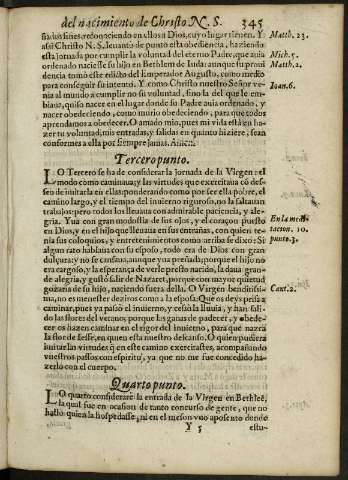 del nacimiento de Christo N. S. 345
sta dos fines, reconociendo en ellos a Dios, cuyo lugar tienen. Y
assi Christo N. S. leuanto de punto esta obediencia, haziendo
esta jornada por cumplir la voluntad del eterno Padre, que auia
ordenado naciesse su hijo en Bethlem de Iuda: aunque su proui
dencia tomò este edicto del Emperador Augusto, como medio
para conseguir su intento. Y como Christo nuestro Señor ve-
nia al mundo a cumplir no su voluntad, sino la del que le em-
biaua, quiso nacer en el lugar donde su Padre auia ordenado, y
nacer obedeciendo, como murio obedeciendo, para que todos
aprendamos a obedecer. O amado mio, pues mi vida està en ha-
zer tu voluntad, mis entradas, y salidas en quanto hiziere, sean
conformes a ella por siempre jamas. Amen.
Matth. 23.
Mich. 5.
Matth. 2.
Ioan. 6.
Tercero punto.
LO Tercero se ha de considerar la jornada de la Virgen: el
modo como caminaua; y las virtudes que exercitaua cõ des-
seo de imitarla en ellas: ponderando como por ser ella pobre, el
camino largo, y el tiempo del inuierno riguroso, no la saltauan
trabajos: pero todos los lleuaua con admirable paciencia, y ale-
gria. Yua con gran modestia de sus ojos, y el coraçon puesto
en Dios, y en el hijo que lleuaua en sus entrañas, con quien te-
nia sus coloquios, y entretenimientos como arriba se dixo: Si
algun rato hablaua con su esposo, todo era de Dios con gran
dulçura: y no se cansaua, aunque yua preñada; porque el hijo no
era cargoso, y la esperança de verle presto nacido, la daua gran-
de alegria, y gustò salir de Nazaret, porque con mayor quietud
gozaria de su hijo, naciendo fuera della. O Virgen benditissi-
ma, no es menester deziros como a la esposa: Que os deys prissa a
caminar, pues ya passò el inuierno, y cessò la lluuia, y han sali-
do las flores del verano; porque las ganas de padecer, y obede-
cer os hazen caminar en el rigor del inuierno, para que nazca
la flor de Iesse, en quien esta nuestro descanso. O quien pudiera
imitar las virtudes q̃ en este camino exercitastes, acompañando
vuestros passos con espiritu, ya que no me fue concedido ha-
zerlo con el cuerpo.
En la medi
tacion. 10.
punto. 3.
Cant. 2.
Quarto punto.
LO quarto considerarè la entrada de la Virgen en Bethleẽ,
la qual fue en ocasion de tanto concurso de gente, que no
hallò quien la hospedasse, ni en el meson vuo aposento donde
Y 5 estu-